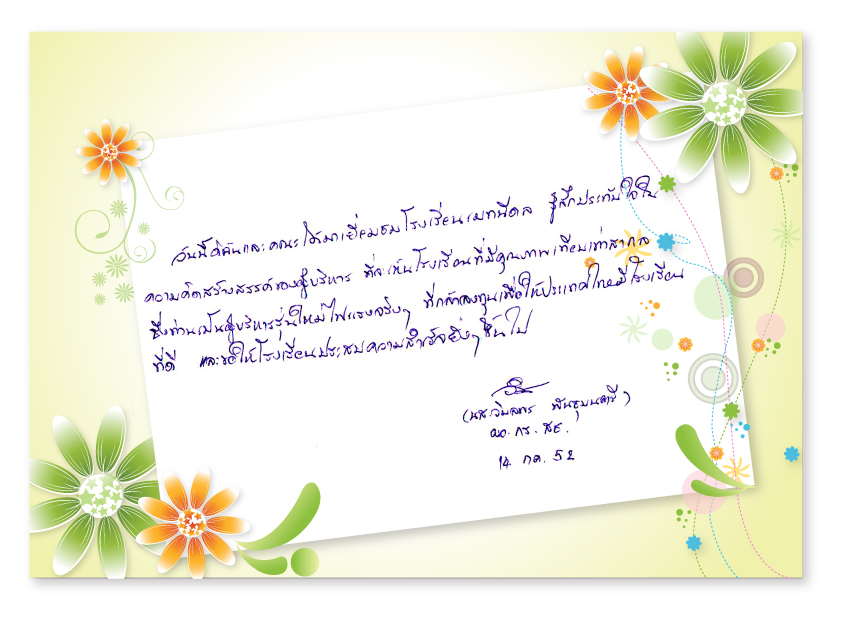 วันนี้ดิฉันและคณะได้มาเยี่ยมชมโรงเรียนเมทนีดล รู้สึกประทับใจใน
ความคิดสร้างสรรค์ของผู้บริหาร ที่จะเห็นโรงเรียนที่มีคุณภาพเทียบเท่าสากล
ซึ่งท่านเป็นผู้บริหารรุ่นใหม่ไฟแรงจริงๆ ที่กล้าลงทุนเพื่อให้ประเทศไทยมีโรงเรียน
ที่ดี และขอให้โรงเรียนประสบความสำเร็จยิ่งๆ ขึ้นไป
(นส.จินตการ
ผอ. กร.
14 กค. 52